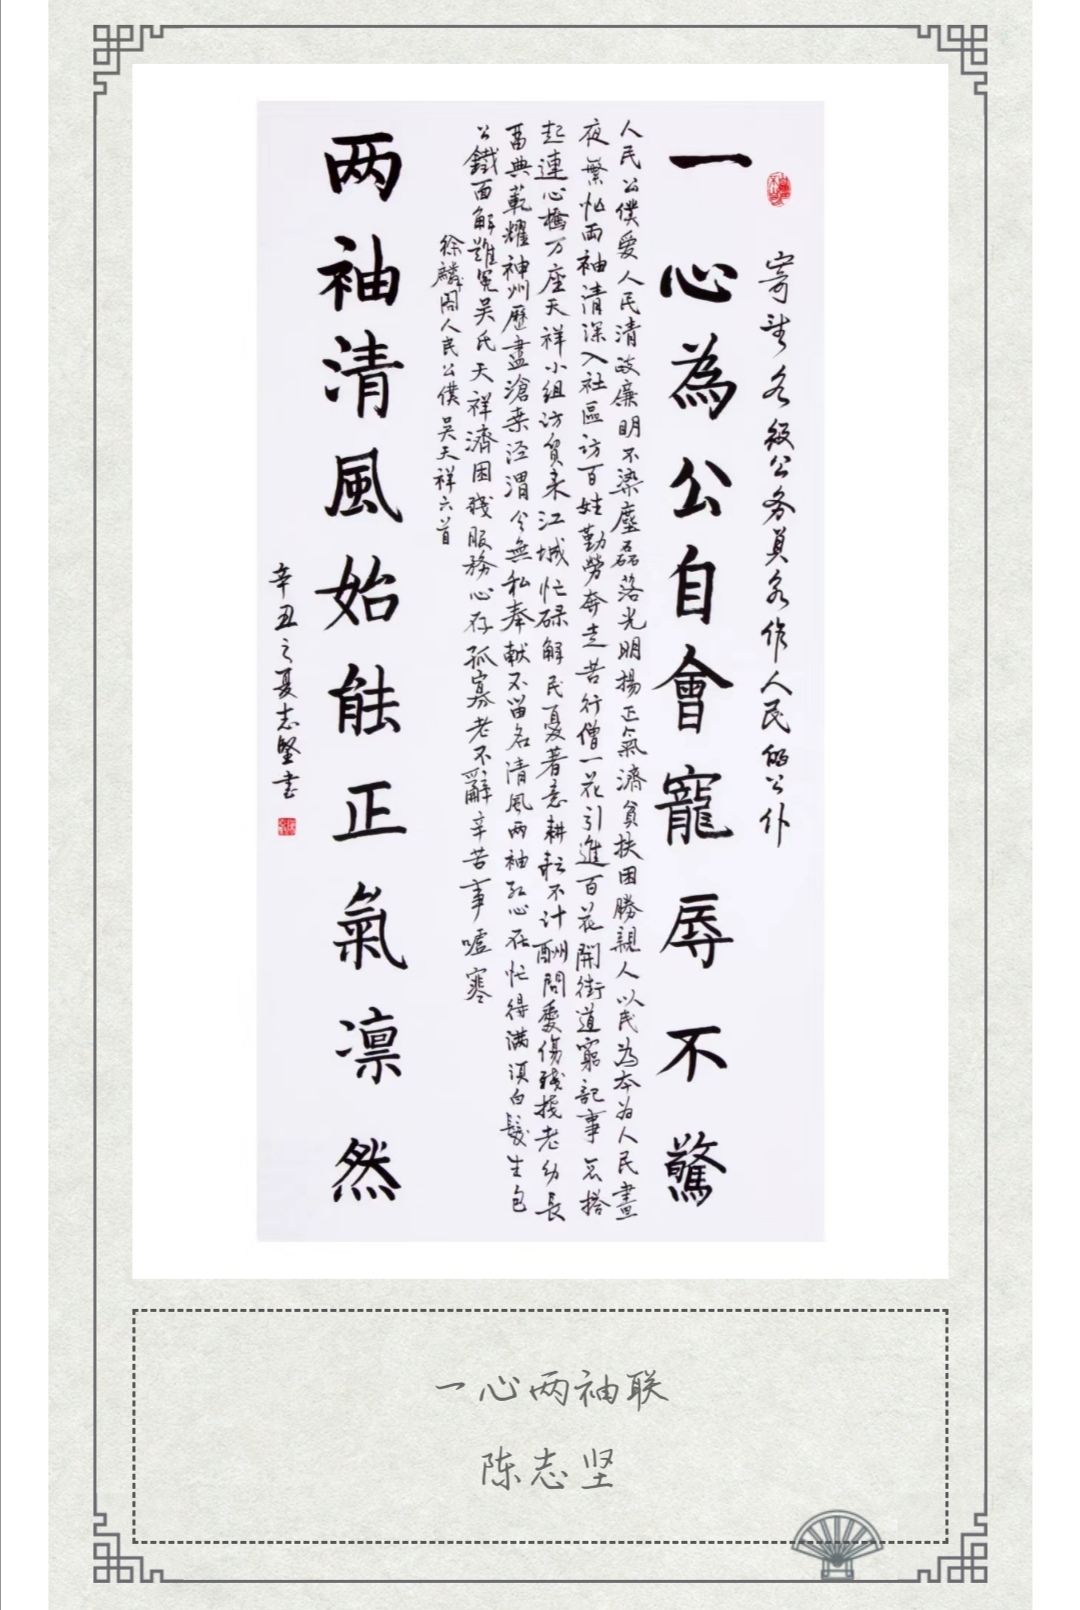 寄望各级公务员永作人民的公仆
一心為公自會寵辱不驚
人民公僕愛人民清政廉明不染塵磊落光明揚正氣濟貧扶困勝親人以民為本為人民晝
夜繁忙両袖清深入社區访百姓勤勞奔走苦行僧一花引進百花開街道窮記事忘搭
起連心橋万座天祥小组访贫来江城忙碌解民憂著意耕耘不计酬問憂傷殘携老幼長
留典範耀神州歷盡滄桑泾渭分無私奉献不留名清風两袖红心在忙得满頂白髮生包
公鐵面解難冤吴氏天祥濟困殘服務心存孤寡老不辭辛苦事嘘寒
徐麟閣人民公僕吴天祥六首
两袖清風始能正氣凛然
辛丑之夏志堅书
一心两袖联
陈志坚